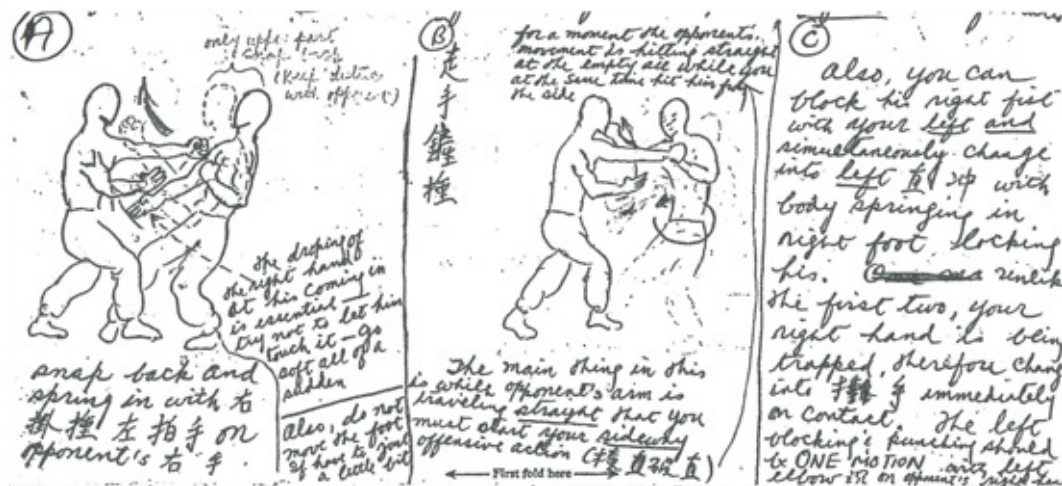 A
only upper part
snap back
(Keep distance
with opponent)
The droping of
the right hand
at his coming in
is essential —
try not to let him
touch it — go
soft all of a
sudden
snap back and
spring in with 右
掛 撞 左 拍 手 on
opponent's 右 手
Also, do not
move the foot
if have to, just
a little bit
B
走
手
撞
for a moment the opponents
movement is hitting straight
at the empty air while you
at the same time hit him from
the side
The main thing in this
is while opponent's arm is
traveling straight that you
must start your sideway
offensive action
First fold here
C
Also, you can
block his right fist
with your left and
simultaneously change
into left 直 冲 with
body springing in
right foot locking
his. unlik
the first two, your
right hand is bein
trapped, therefore chang
into 手 immediately
on contact. The left
blocking & punching should
be ONE MOTION with left
elbow on opponent's right